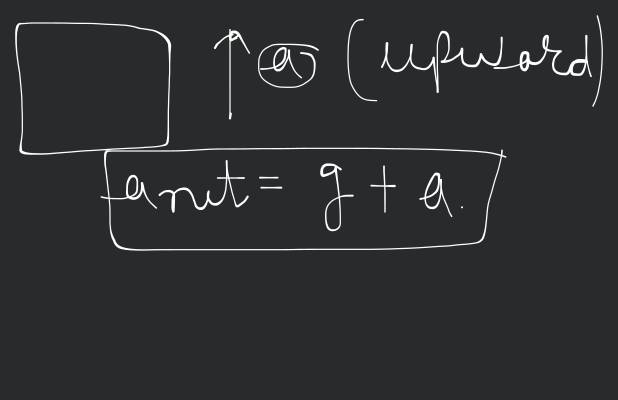 a (upward)
anut = g + a.